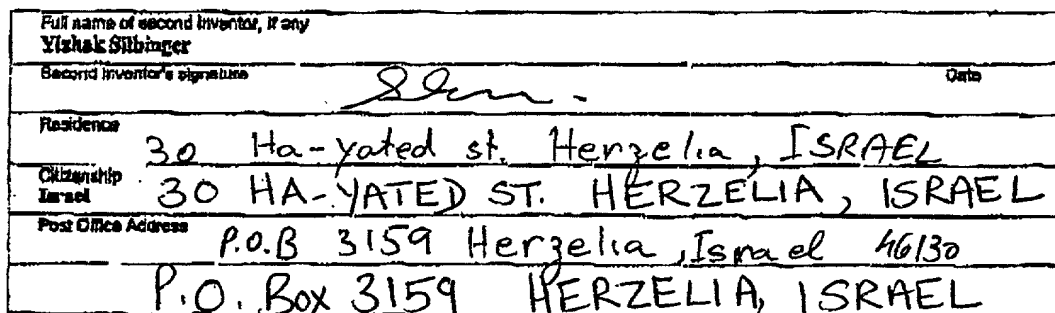 Full name of second inventor, if any
Yizhak Silbinger
Second inventor's signature Date
Residence
30 Ha-yated st. Herzelia, ISRAEL
Citizenship
Israel 30 HA-YATED ST. HERZELIA, ISRAEL
Post Office Address
P.O.B 3159 Herzelia, Israel 46130
P.O. Box 3159 HERZELIA, ISRAEL